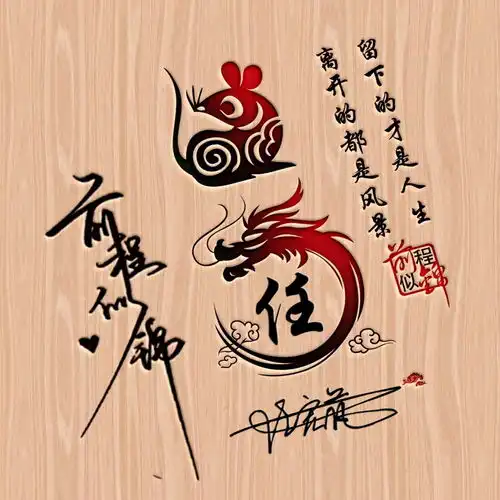 留下的才是人生
离开的都是风景
前程似锦
任
前程似锦